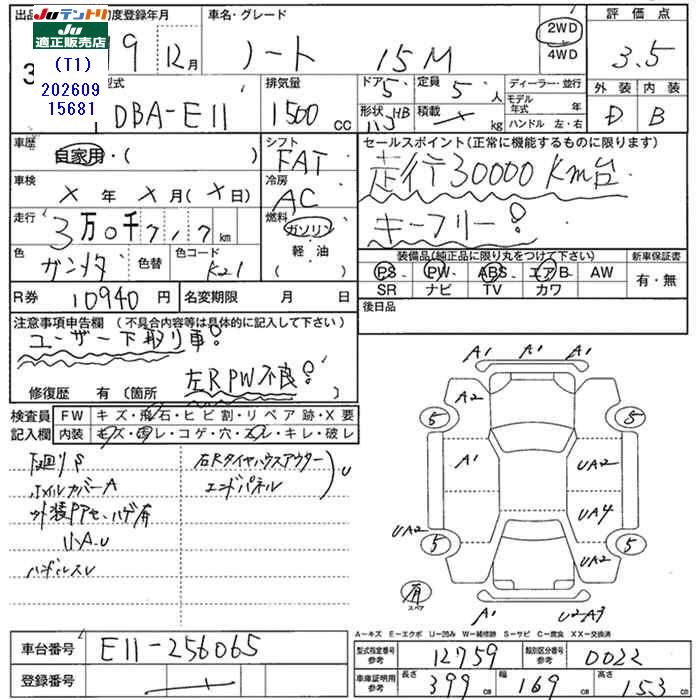 JUテントリ
JU適正販売店
(T1)
202609
15681
出品
初度登録年月
車名・グレード
評価点
9 12月
ノート 15M
2WD
4WD
3.5
型式
排気量
ドア 5
定員 5 人
ディーラー・並行
外装
内装
DBA-E11
1500 CC
形状 HB
積載 kg
モデル年式 年
ハンドル 左・右
D
B
車歴
自家用・( )
シフト
FAT
セールスポイント(正常に機能するものに限ります)
走行30000Km台
キーフリー!
車検
X 年 X 月(X 日)
冷房
AC
走行
3万0千717km
燃料
ガソリン
軽油
( )
色
ガンメタ
色替
色コード
K21
装備品(純正品に限り丸をつけて下さい)
新車保証書
PS PW ABS エアB AW
SR ナビ TV カワ
有・無
R券
10940円
名変期限 月 日
後日品
注意事項申告欄(不具合内容等は具体的に記入して下さい)
ユーザー下取り車!
左RPW不良!
修復歴 有(箇所
検査員
記入欄
FW キズ・飛石・ヒビ割・リペア跡・X要
内装 キズ・汚レ・コゲ・穴・スレ・キレ・破レ
下廻りS
ホイルカバーA
外装PアセハゲA
小A・U
ハンドルスレ
右RタイヤハウスアウターU
エンドパネル
A1 A1 A1
A2
5 5
A1
UA2
UA4
UA2
UA2
5 5
有
スペア
A1
U2A3
A-キズ E-エクボ U-凹み W-補修跡 S-サビ C-腐食 XX-交換済
車台番号
E11-256065
型式指定番号
参考
12759
類別区分番号
参考
0022
登録番号
車庫証明用
参考
長さ 399 cm
幅 169 cm
高さ 153 cm